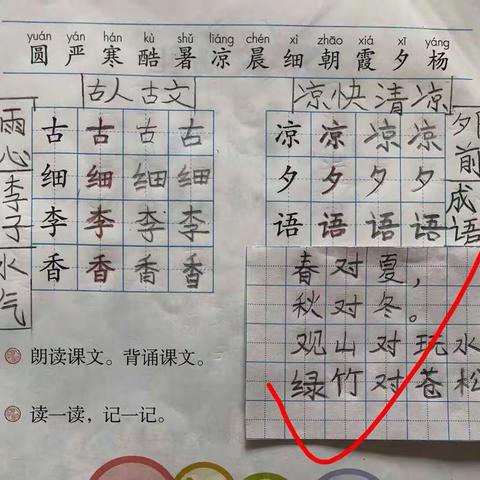 yuán yán hán kù shǔ liáng chén xì zhāo xiá xī yáng
圆 严 寒 酷 暑 凉 晨 细 朝 霞 夕 杨
古人古文
凉快清凉
雨心
李子
水气
古 古 古 古
细 细 细 细
李 李 李 李
香 香 香 香
凉 凉 凉 凉
夕 夕 夕 夕
语 语 语 语
夕前
成语
春对夏，
秋对冬。
观山对玩水
绿竹对苍松
朗读课文。背诵课文。
读一读，记一记。